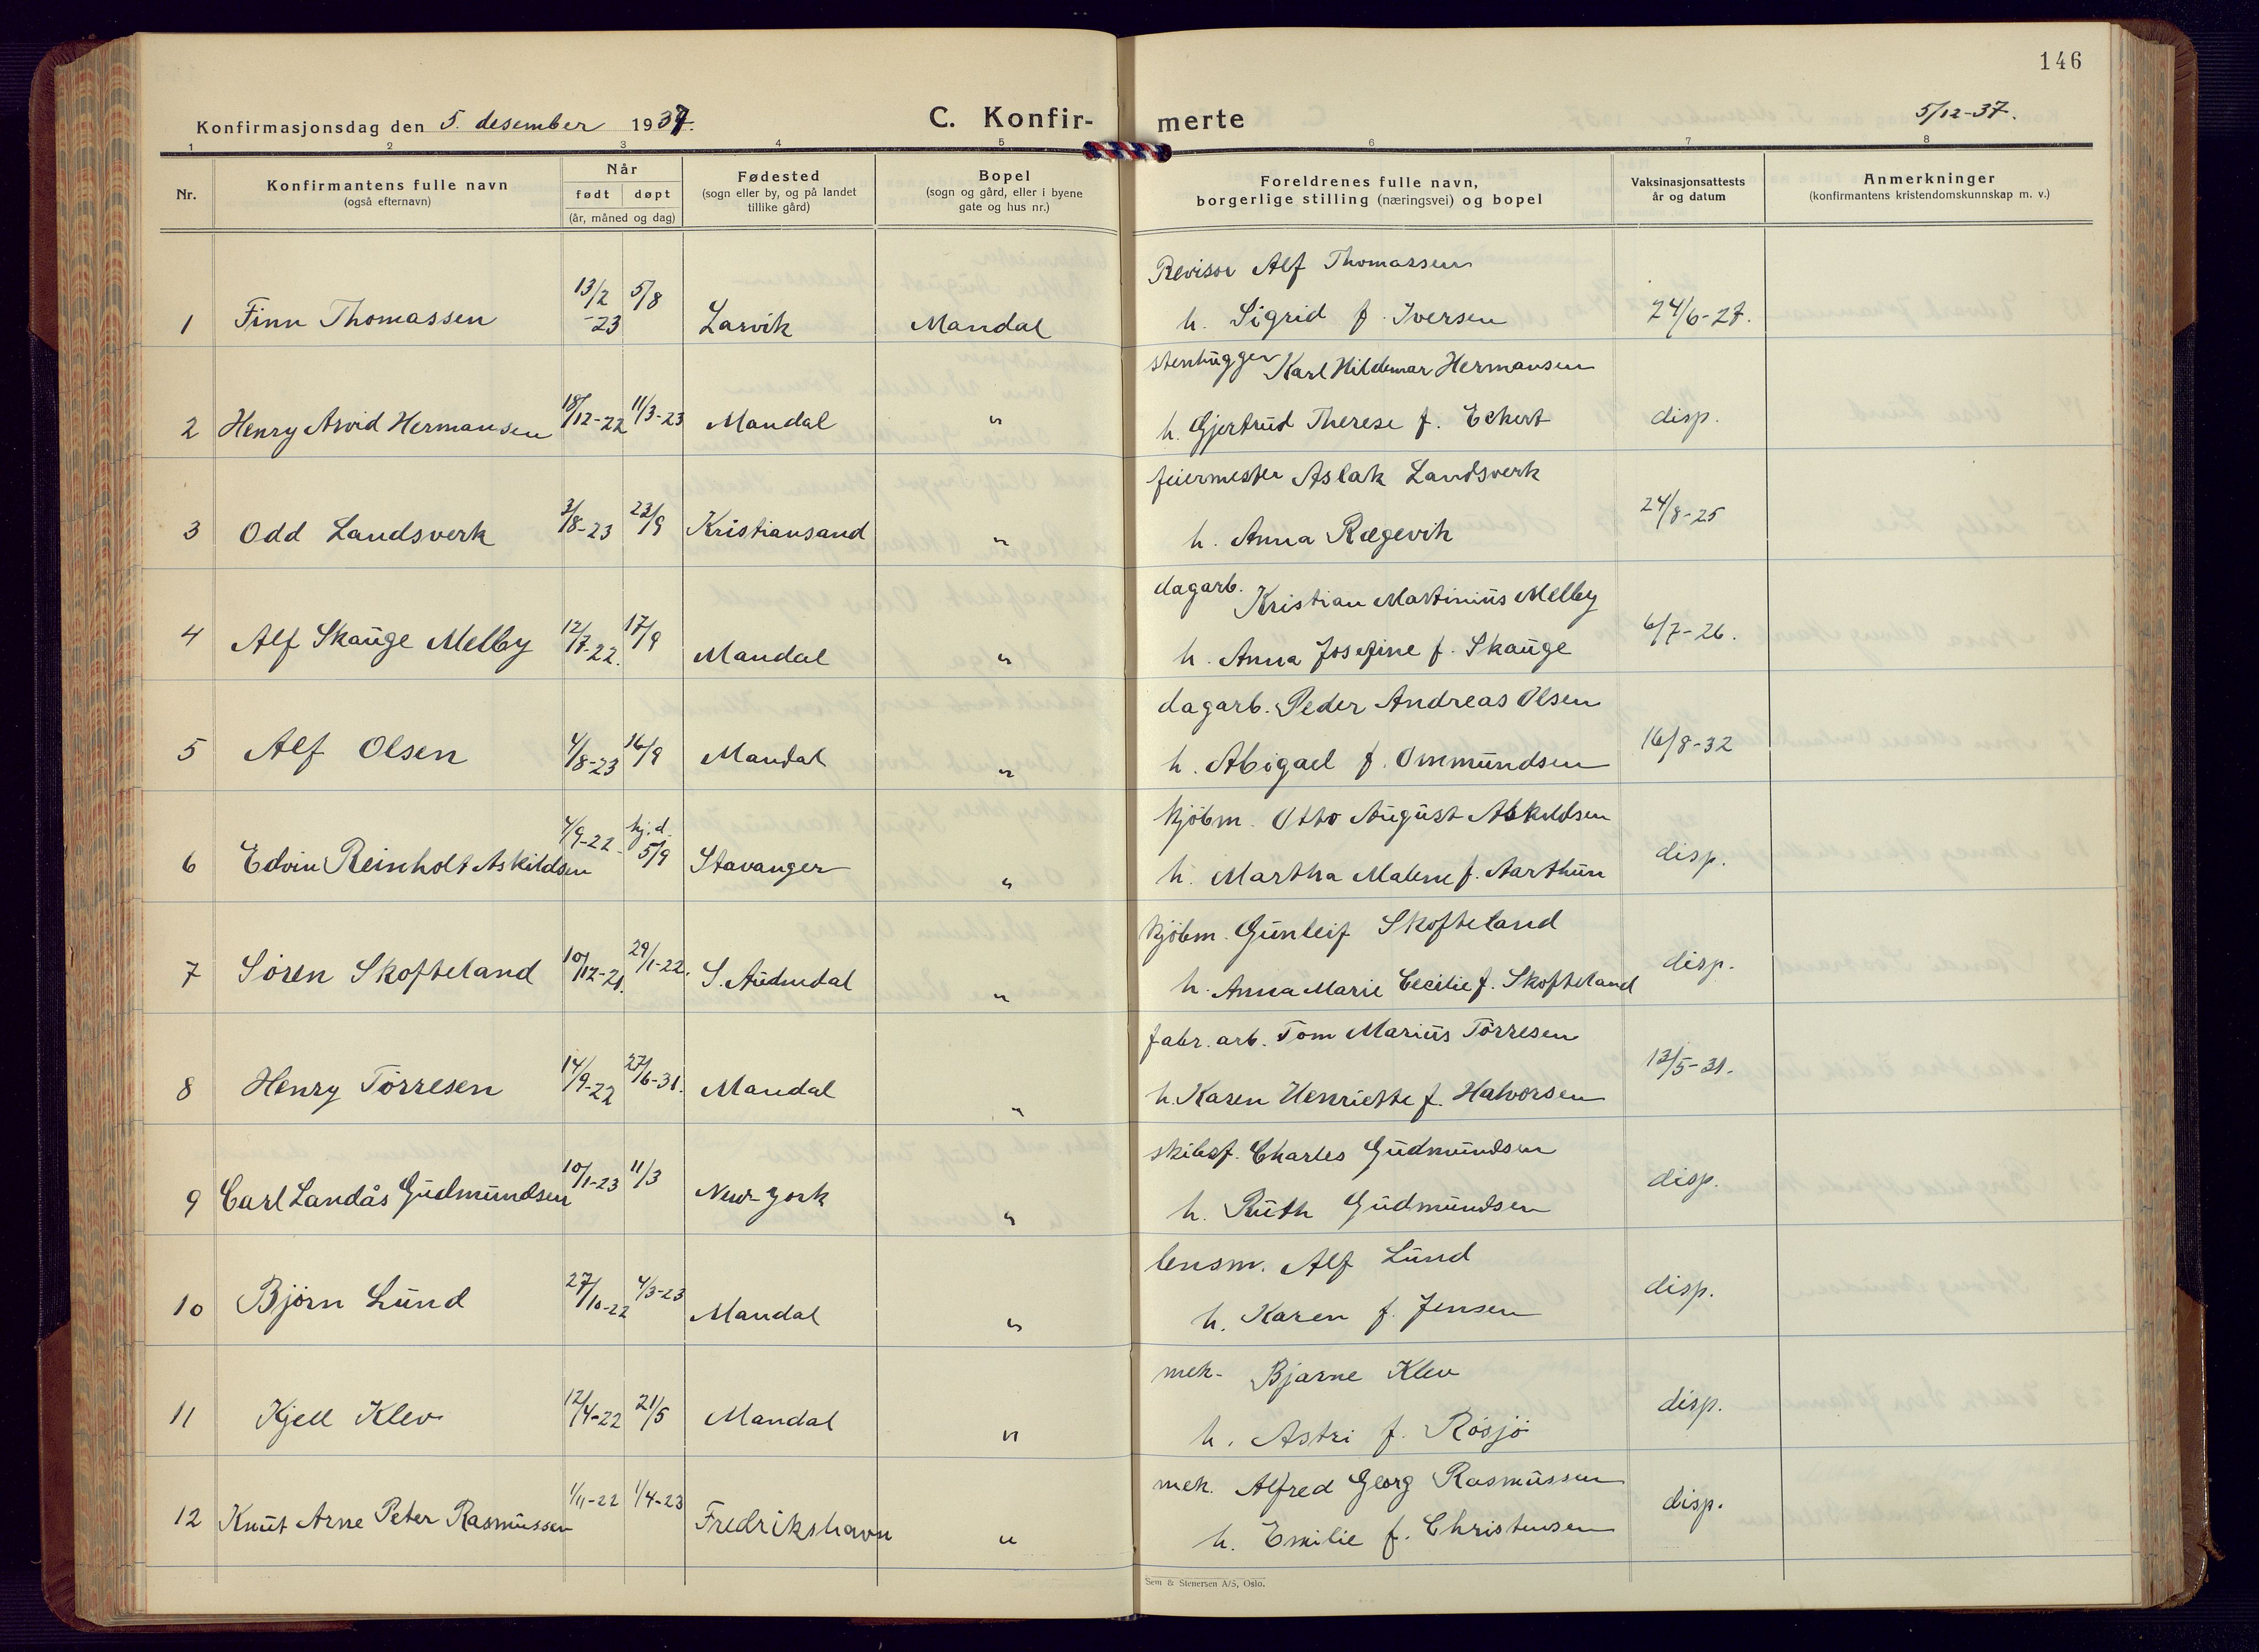 146
Konfirmasjonsdag den 5. desember 1937.
C. Konfir-
merte
5/12-37.
1 2 3 4 5 6 7 8
Nr.
Konfirmantens fulle navn
(også efternavn)
Når
født døpt
(år, måned og dag)
Fødested
(sogn eller by, og på landet
tillike gård)
Bopel
(sogn og gård, eller i byene
gate og hus nr.)
Foreldrenes fulle navn,
borgerlige stilling (næringsvei) og bopel
Vaksinasjonsattests
år og datum
Anmerkninger
(konfirmantens kristendomskunnskap m. v.)
Revisor Alf Thomassen
1 Finn Thomassen 13/2 -23 5/8 Larvik Mandal h. Sigrid f. Iversen 24/6-27.
stenhugger Karl Hildemar Hermansen
2 Henry Arvid Hermansen 18/12-22 11/3-23 Mandal " h. Gjertrud Therese f. Eckert disp.
feiermester Aslak Landsverk
3 Odd Landsverk 3/8-23 23/9 Kristiansand " h. Anna Rægevik 24/8-25
dagarb. Kristian Martinius Melby
4 Alf Skauge Melby 12/7-22. 17/9 Mandal " h. Anna Josefine f. Skauge 6/7-26.
dagarb. Peder Andreas Olsen
5 Alf Olsen 4/8-23 16/9 Mandal " h. Abigael f. Ommundsen 16/8-32
kjøbm. Otto August Askildsen
6 Edvin Reinholt Askildsen 4/9-22 hj.d. 5/9 Stavanger " h. Martha Malene f. Aarthun disp.
kjøbm. Gunleif Skofteland
7 Søren Skofteland 10/12-21. 29/1-22. S. Audnedal " h. Anna Marie Cecilie f. Skofteland disp.
fabr. arb. Tom Marius Tørresen
8 Henry Tørresen 14/9-22 27/6-31. Mandal " h. Karen Henriette f. Halvorsen 13/5-31.
skibsf. Charles Gudmundsen
9 Carl Landås Gudmundsen 10/1-23 11/3 New-York " h. Ruth Gudmundsen disp.
lensm. Alf Lund
10 Bjørn Lund 27/10-22 4/3-23 Mandal " h. Karen f. Jensen disp.
mek. Bjarne Klev
11 Kjell Klev 12/4-22 21/5 Mandal " h. Astri f. Røsjø disp.
mek. Alfred Georg Rasmussen
12 Knut Arne Peter Rasmussen 1/11-22 1/4-23 Fredrikshavn " h. Emilie f. Christensen disp.
Sem & Stenersen A/S, Oslo.